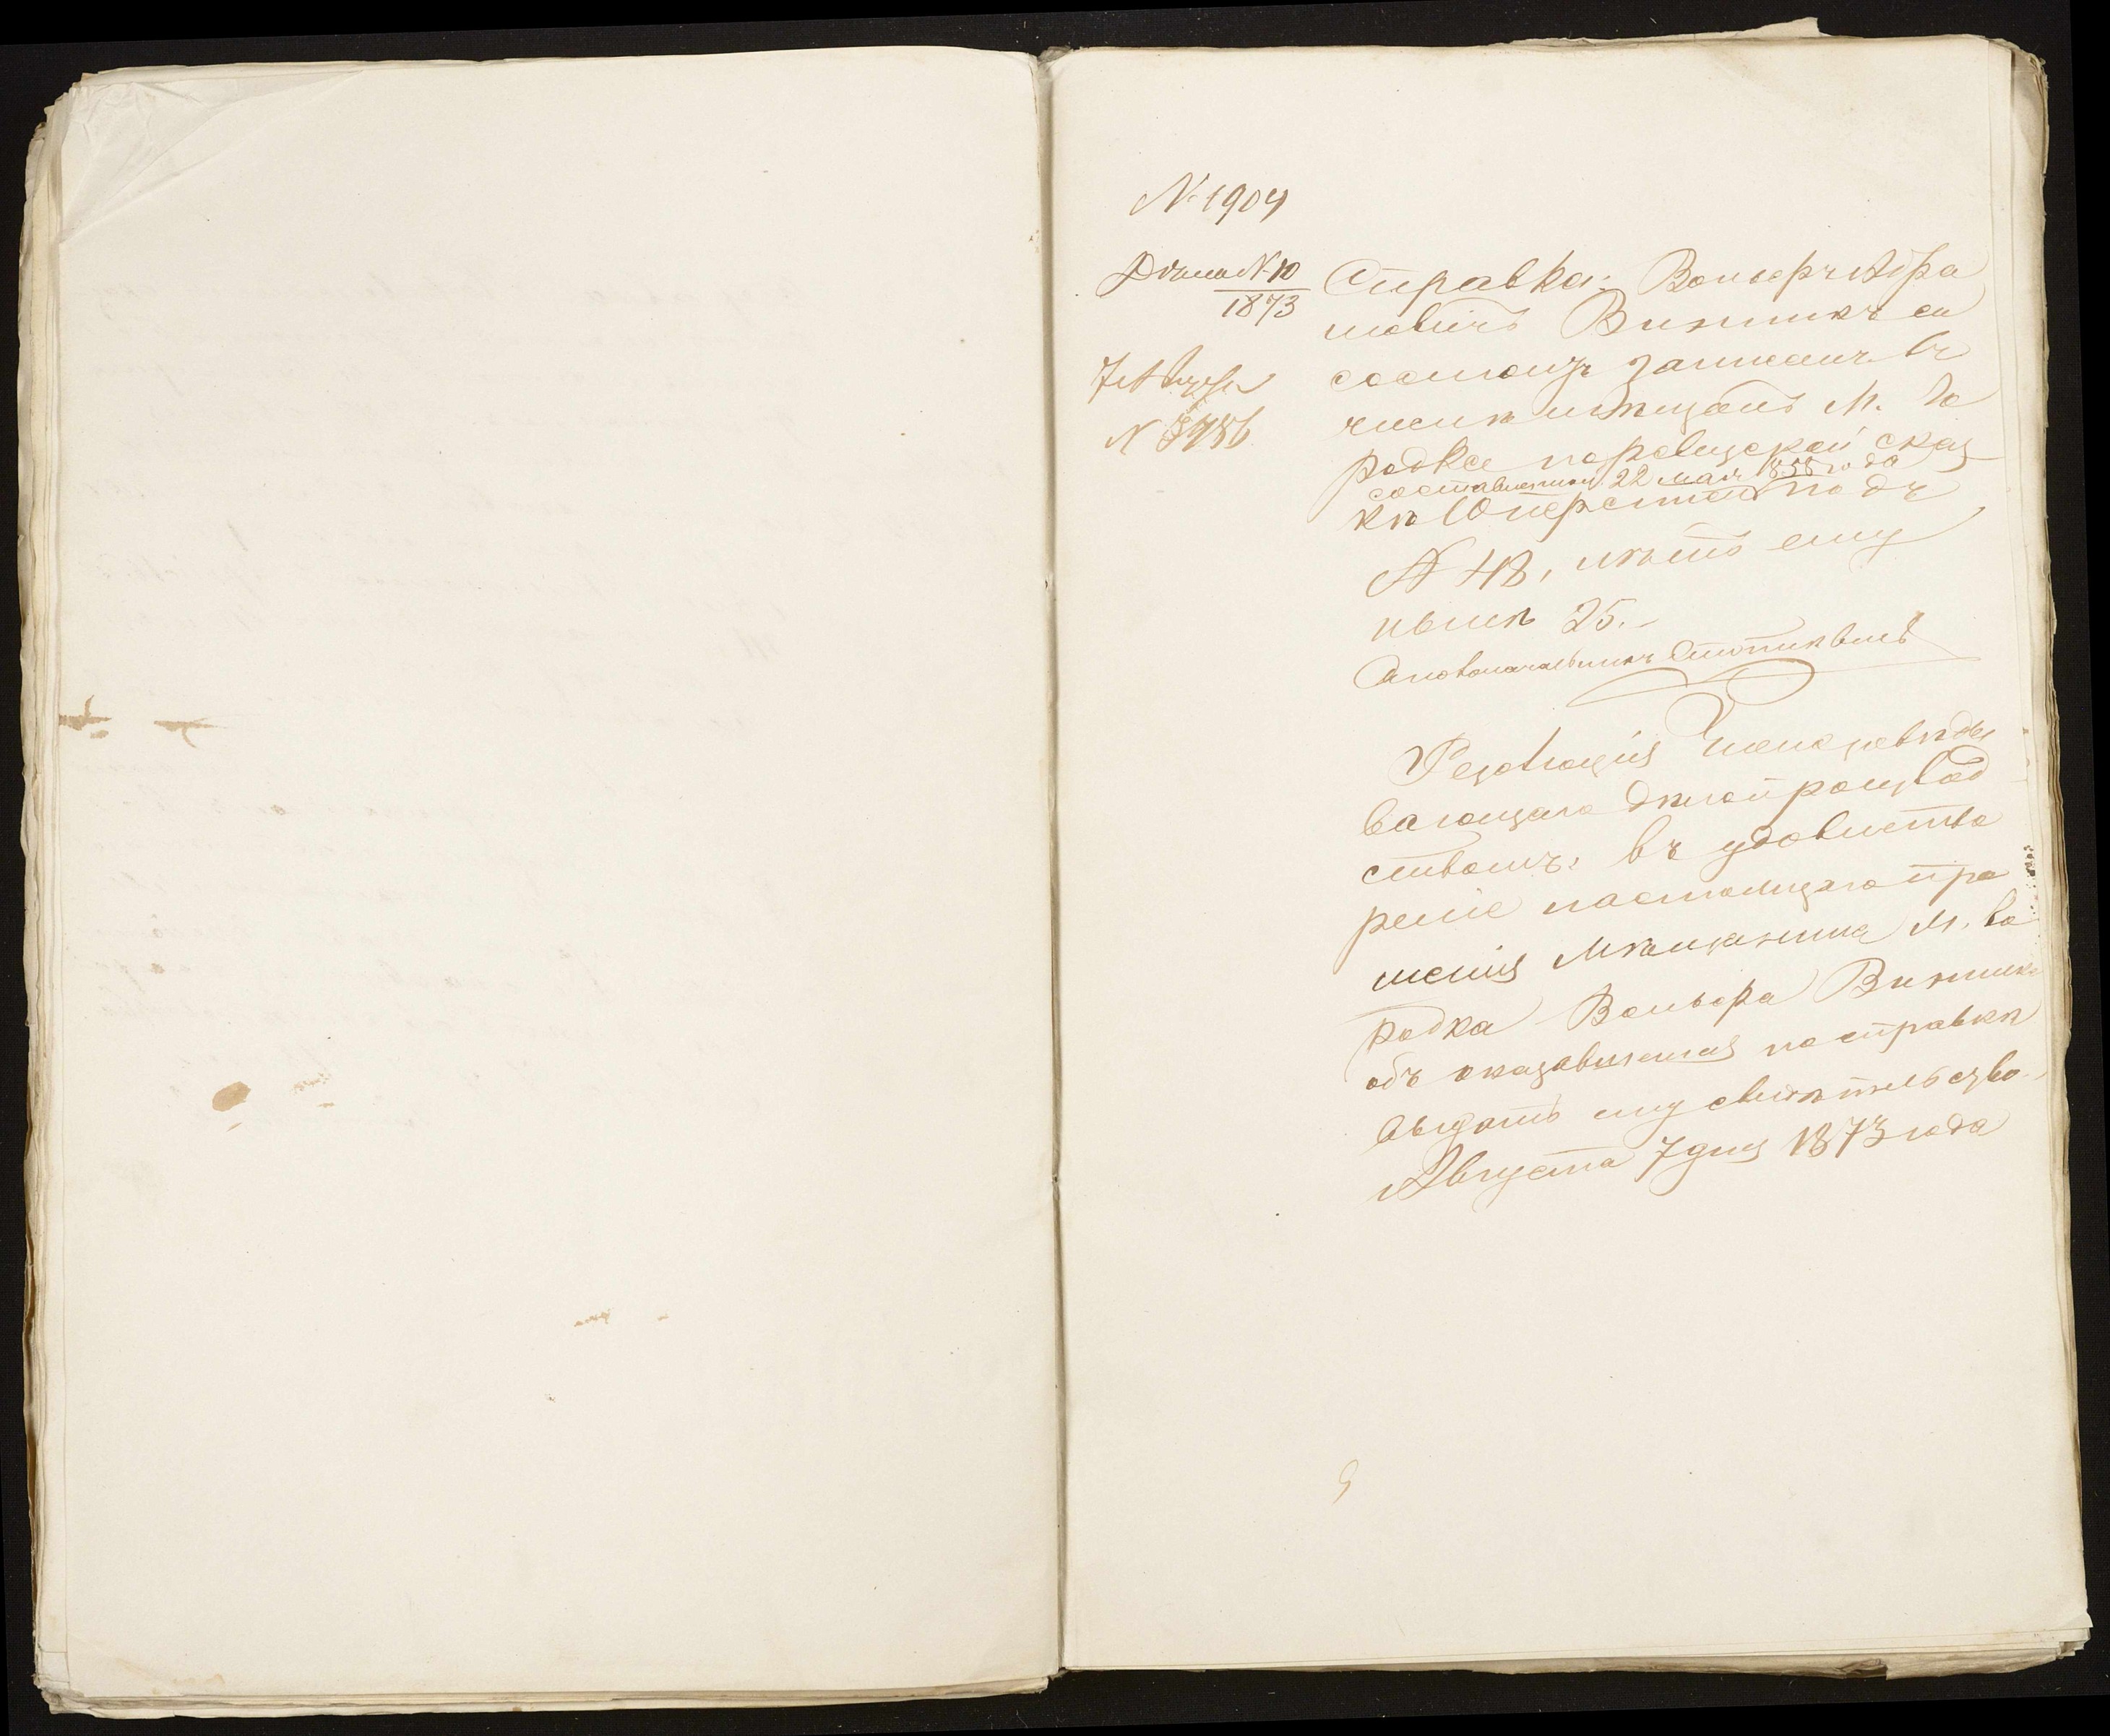 № 1904
Дѣло № 10
1873
7 Августа
№ 3456
Справка: Вольфъ Абра
мовичъ Винникъ
состоитъ записанъ въ
числѣ мѣщанъ м. Го
родка по ревизской сказ
составленной 22 мая 1858 года
кѣ подъ
№ 48, лѣтъ ему
нынѣ 25.
Столоначальникъ
Резолюція
вающаго дѣлопроизвод
ствомъ: въ удовлетво
реніе настоящаго про
шенія мѣщанина м. Го
родка Вольфа Винника
объ оказавшемся по справкѣ
выдать ему свидѣтельство.
Августа 7 дня 1873 года